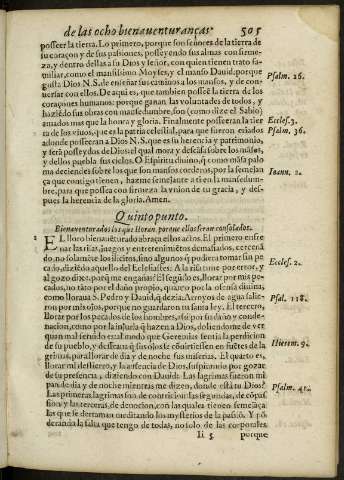 de las ocho bienauenturanças. 505
posseer la tierra. Lo primero, porque son señores de la tierra de
su coraçon y de sus passiones, posseyendo sus almas con firme-
za, y dentro dellas a su Dios y señor, con quien tienen trato fa-
miliar, como el mansissimo Moyses, y el manso Dauid: porque
gusta Dios N.S. de enseñar sus caminos a los mansos, y de con- Psalm. 26.
uersar con ellos. De aqui es, que tambien posseē la tierra de los
coraçones humanos: porque ganan las voluntades de todos, y
haziēdo sus obras con mansedumbre, son (como dize el Sabio)
amados mas que la honra y gloria. Finalmente posseeran la tier Eccles. 3.
ra de los viuos, que es la patria celestial, para que fueron criados Psalm. 36.
adonde posseeran a Dios N.S. que es su herencia y patrimonio,
y serā posseydos de Dios: el qual mora y descāsa sobre los māsos,
y dellos puebla sus cielos. O Espiritu diuino, q̄ como māsa palo
ma decendes sobre los que son mansos corderos, por la semejan Ioann. 2.
ça que contigo tienen, hazme semejante a ti en la mansedum-
bre, para que possea con firmeza la vnion de tu gracia, y des-
pues la herencia de la gloria. Amen.
Quinto punto.
Bienauenturados los que lloran, porque ellos seran consolados.
EL lloro bienauēturado abraça estos actos. El primero es fre
nar las risas, juegos y entretenimiētos demasiados, cercenā
do no solamēte los ilicitos, sino algunos q̄ pudiera tomar sin pe
cado, diziēdo aquello del Eclesiastes: A la risa tuue por error, y Eccles. 2.
al gozo dixe, porq̄ me engañas? El segūdo es, llorar por mis pe-
cados, no tāto por el daño proprio, quāto por la ofensa diuina,
como lloraua S. Pedro y Dauid, q̄ dezia: Arroyos de agua salie-
ron por mis ojos, porque no guardaron tu santa ley. El tercero, Psal. 118.
llorar por los pecados de los hombres, assi por su daño y conde-
nacion, como por la injuria q̄ hazen a Dios, doliendome de ver
quan mal seruido es: al modo que Gieremias sentia la perdicion
de su pueblo, y desseaua q̄ sus ojos se cōuirtiessen en fuētes de la Hierem. 9.
grimas, para llorar de dia y de noche sus miserias. El quarto es,
llorar mi destierro, y la ausencia de Dios, suspirando por gozar
de su presencia, diziendo con Dauid: Las lagrimas fueron mi
pan de dia y de noche mientras me dizen, donde està tu Dios? Psalm. 41.
Las primeras lagrimas son de contricion: las segundas, de cōpas
sion: y las terceras, de deuocion, con las quales tienen semejāça
las que se derraman meditando los mysterios de la passiō. Y pō
derando la falta que tengo de todas, no solo de las corporales
Ii 5 porque